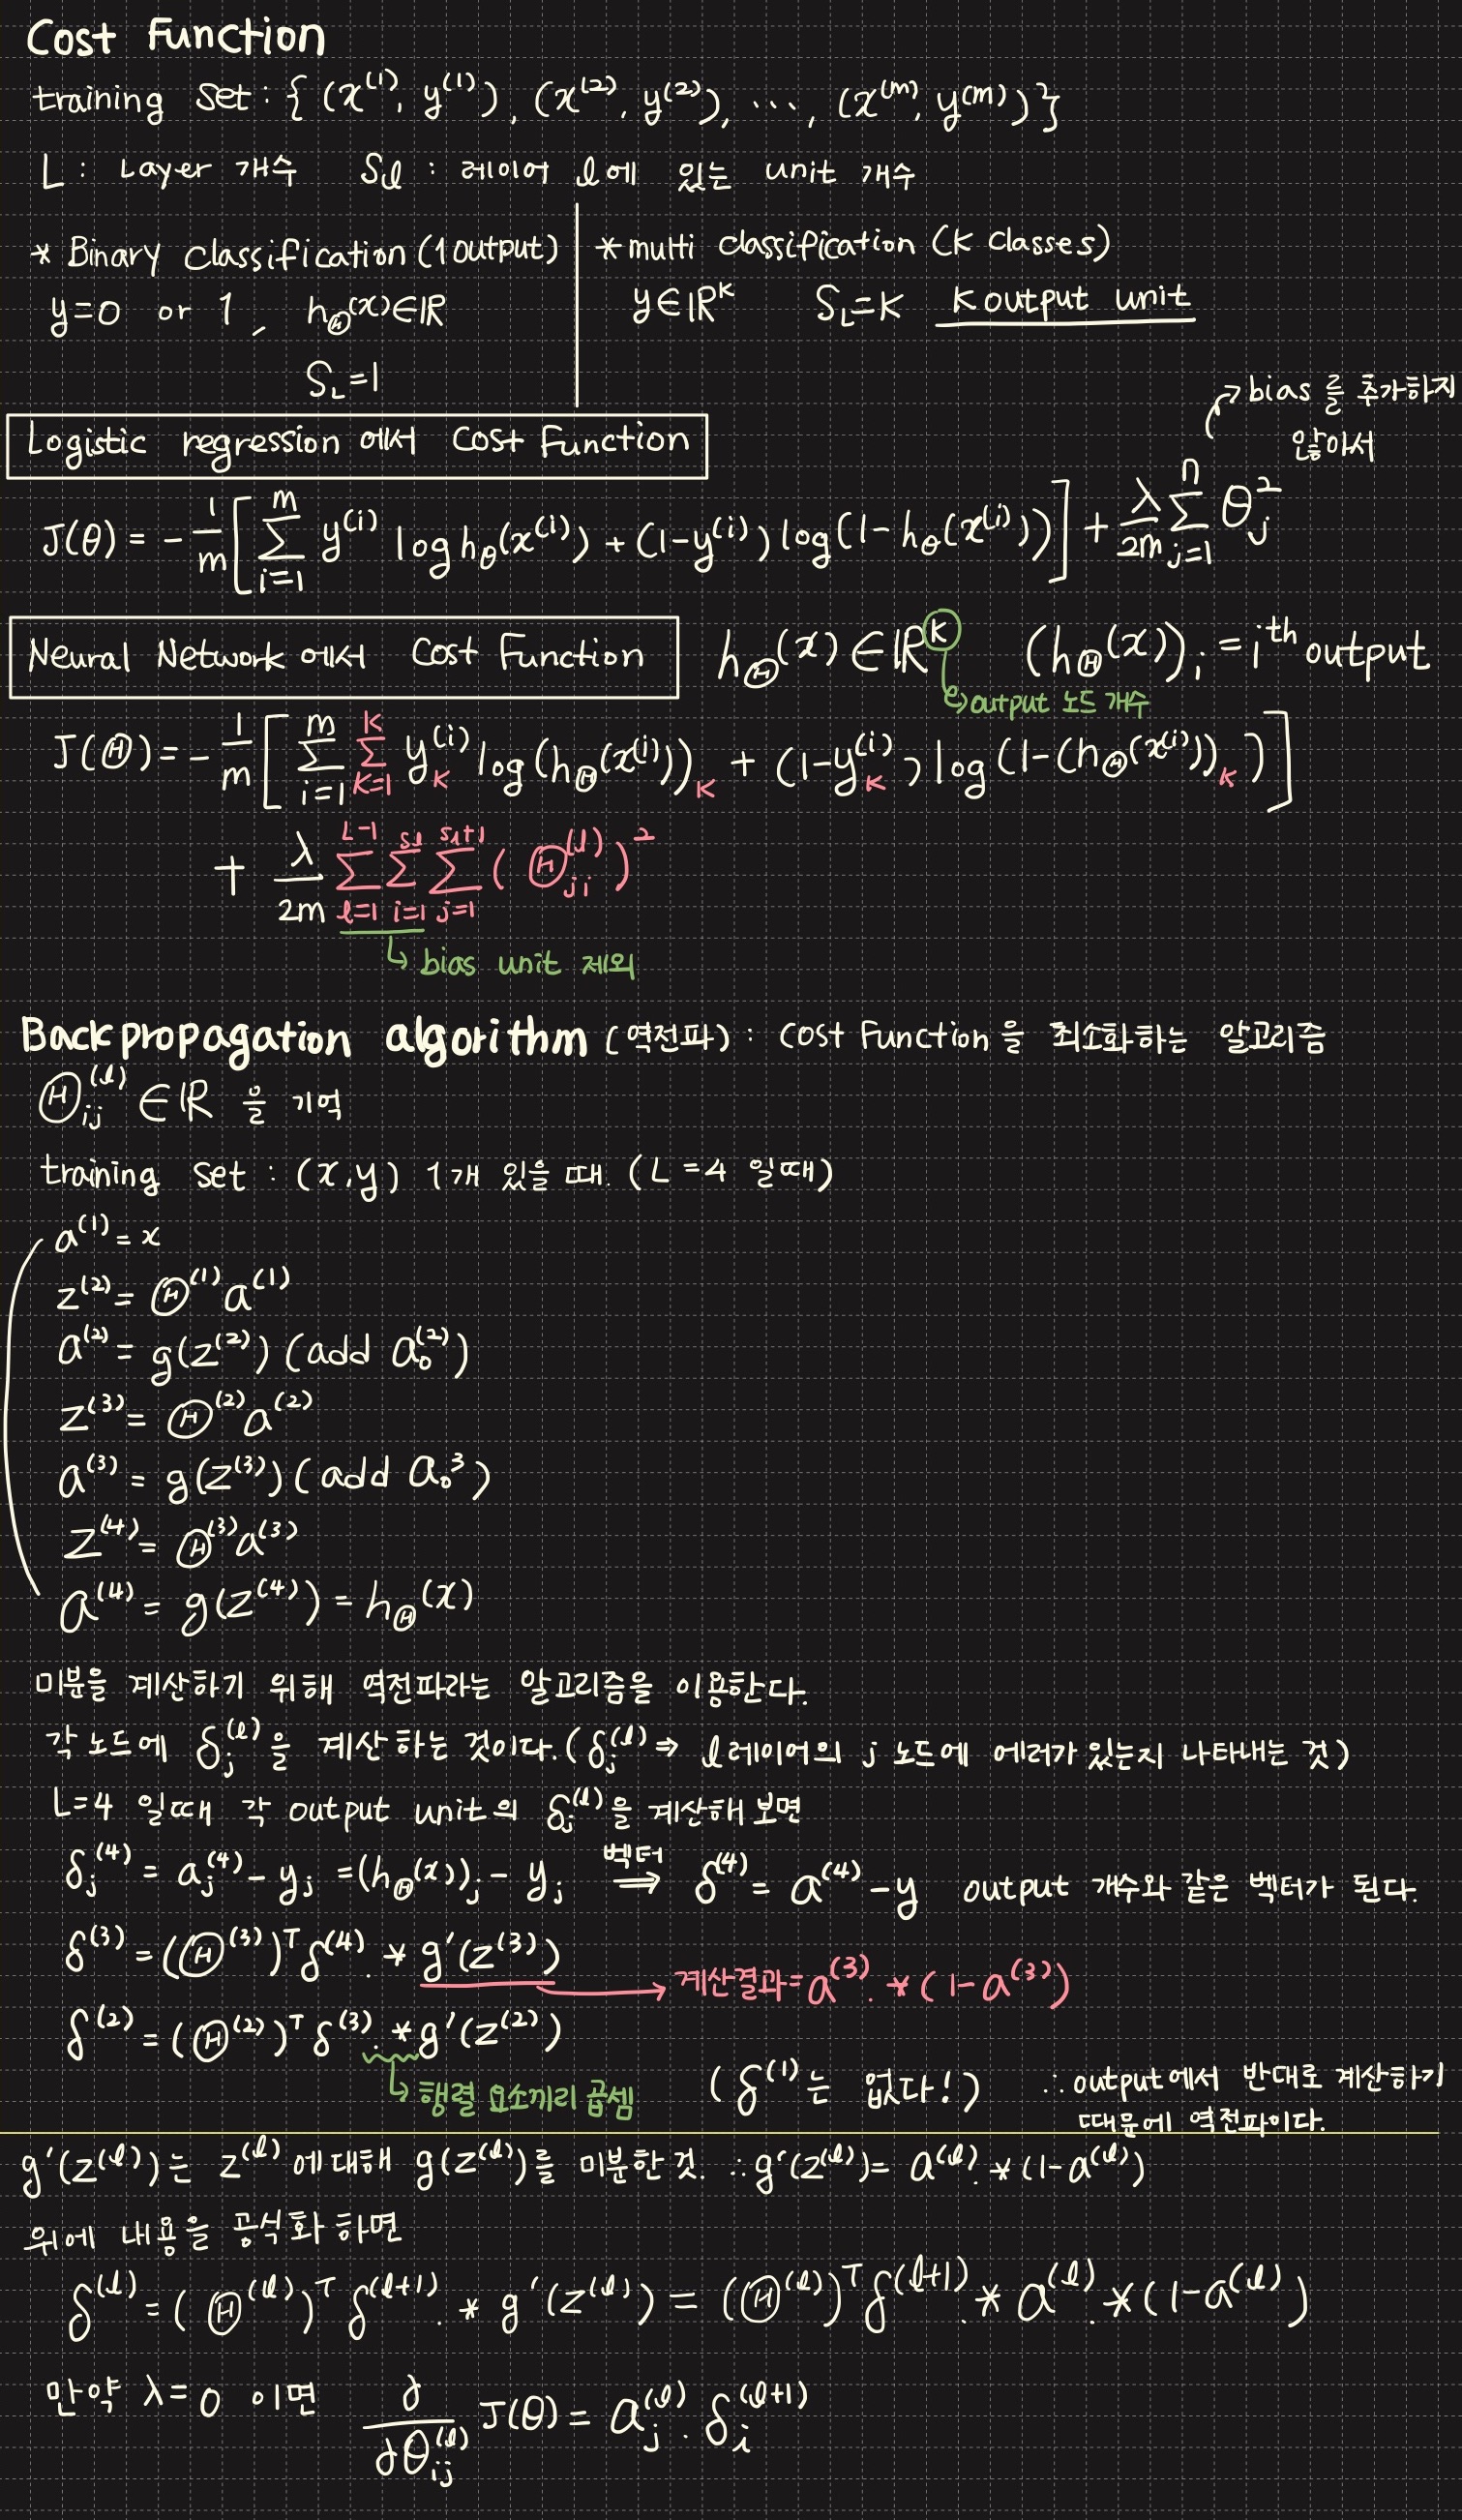 Cost Function
training set : { (x⁽¹⁾, y⁽¹⁾), (x⁽²⁾, y⁽²⁾), ⋯, (x⁽ᵐ⁾, y⁽ᵐ⁾) }
L : Layer 개수 S_l : 레이어 l에 있는 unit 개수
* Binary classification (1 output)
y=0 or 1, h_Θ(x)∈ℝ
S_L=1
* multi classification (K classes)
y∈ℝ^K S_L=K K output unit
Logistic regression 에서 Cost Function
→ bias 를 추가하지
않아서
J(θ) = -1/m [ Σ_{i=1}^{m} y^(i) log h_θ(x^(i)) + (1-y^(i)) log(1-h_θ(x^(i))) ] + λ/2m Σ_{j=1}^{n} θ_j^2
Neural Network 에서 Cost Function
h_Θ(x) ∈ ℝ^K (h_Θ(x))_i = i^th output
→ output 노드 개수
J(Θ) = -1/m [ Σ_{i=1}^{m} Σ_{K=1}^{K} y_K^(i) log(h_Θ(x^(i)))_K + (1-y_K^(i)) log(1-(h_Θ(x^(i)))_K) ]
+ λ/2m Σ_{l=1}^{L-1} Σ_{i=1}^{s_l} Σ_{j=1}^{s_l+1} (Θ_{ji}^(l))^2
↳ bias unit 제외
Backpropagation algorithm (역전파) : Cost Function을 최소화하는 알고리즘
Θ_{ij}^(l) ∈ ℝ 을 기억
training set : (x, y) 1개 있을 때. (L=4 일때)
a^(1) = x
z^(2) = Θ^(1) a^(1)
a^(2) = g(z^(2)) (add a_0^(2))
z^(3) = Θ^(2) a^(2)
a^(3) = g(z^(3)) (add a_0^3)
z^(4) = Θ^(3) a^(3)
a^(4) = g(z^(4)) = h_Θ(x)
미분을 계산하기 위해 역전파라는 알고리즘을 이용한다.
각 노드에 δ_j^(l)을 계산하는 것이다. (δ_j^(l) ⇒ l레이어의 j 노드에 에러가 있는지 나타내는 것)
L=4 일때 각 output unit의 δ_j^(l)을 계산해 보면
δ_j^(4) = a_j^(4) - y_j = (h_Θ(x))_j - y_j 벡터 ⇒ δ^(4) = a^(4) - y output 개수와 같은 벡터가 된다.
δ^(3) = (Θ^(3))^T δ^(4) .* g'(z^(3))
→ 계산결과 = a^(3) .* (1-a^(3))
δ^(2) = (Θ^(2))^T δ^(3) .* g'(z^(2))
↳ 행렬 요소끼리 곱셈
(δ^(1)는 없다!) ∴ output에서 반대로 계산하기
때문에 역전파이다.
g'(z^(l))는 z^(l)에 대해 g(z^(l))를 미분한 것. ∴ g'(z^(l)) = a^(l) .* (1-a^(l))
위에 내용을 공식화 하면
δ^(l) = (Θ^(l))^T δ^(l+1) .* g'(z^(l)) = (Θ^(l))^T δ^(l+1) .* a^(l) .* (1-a^(l))
만약 λ=0 이면 ∂/∂θ_{ij}^(l) J(θ) = a_j^(l) . δ_i^(l+1)